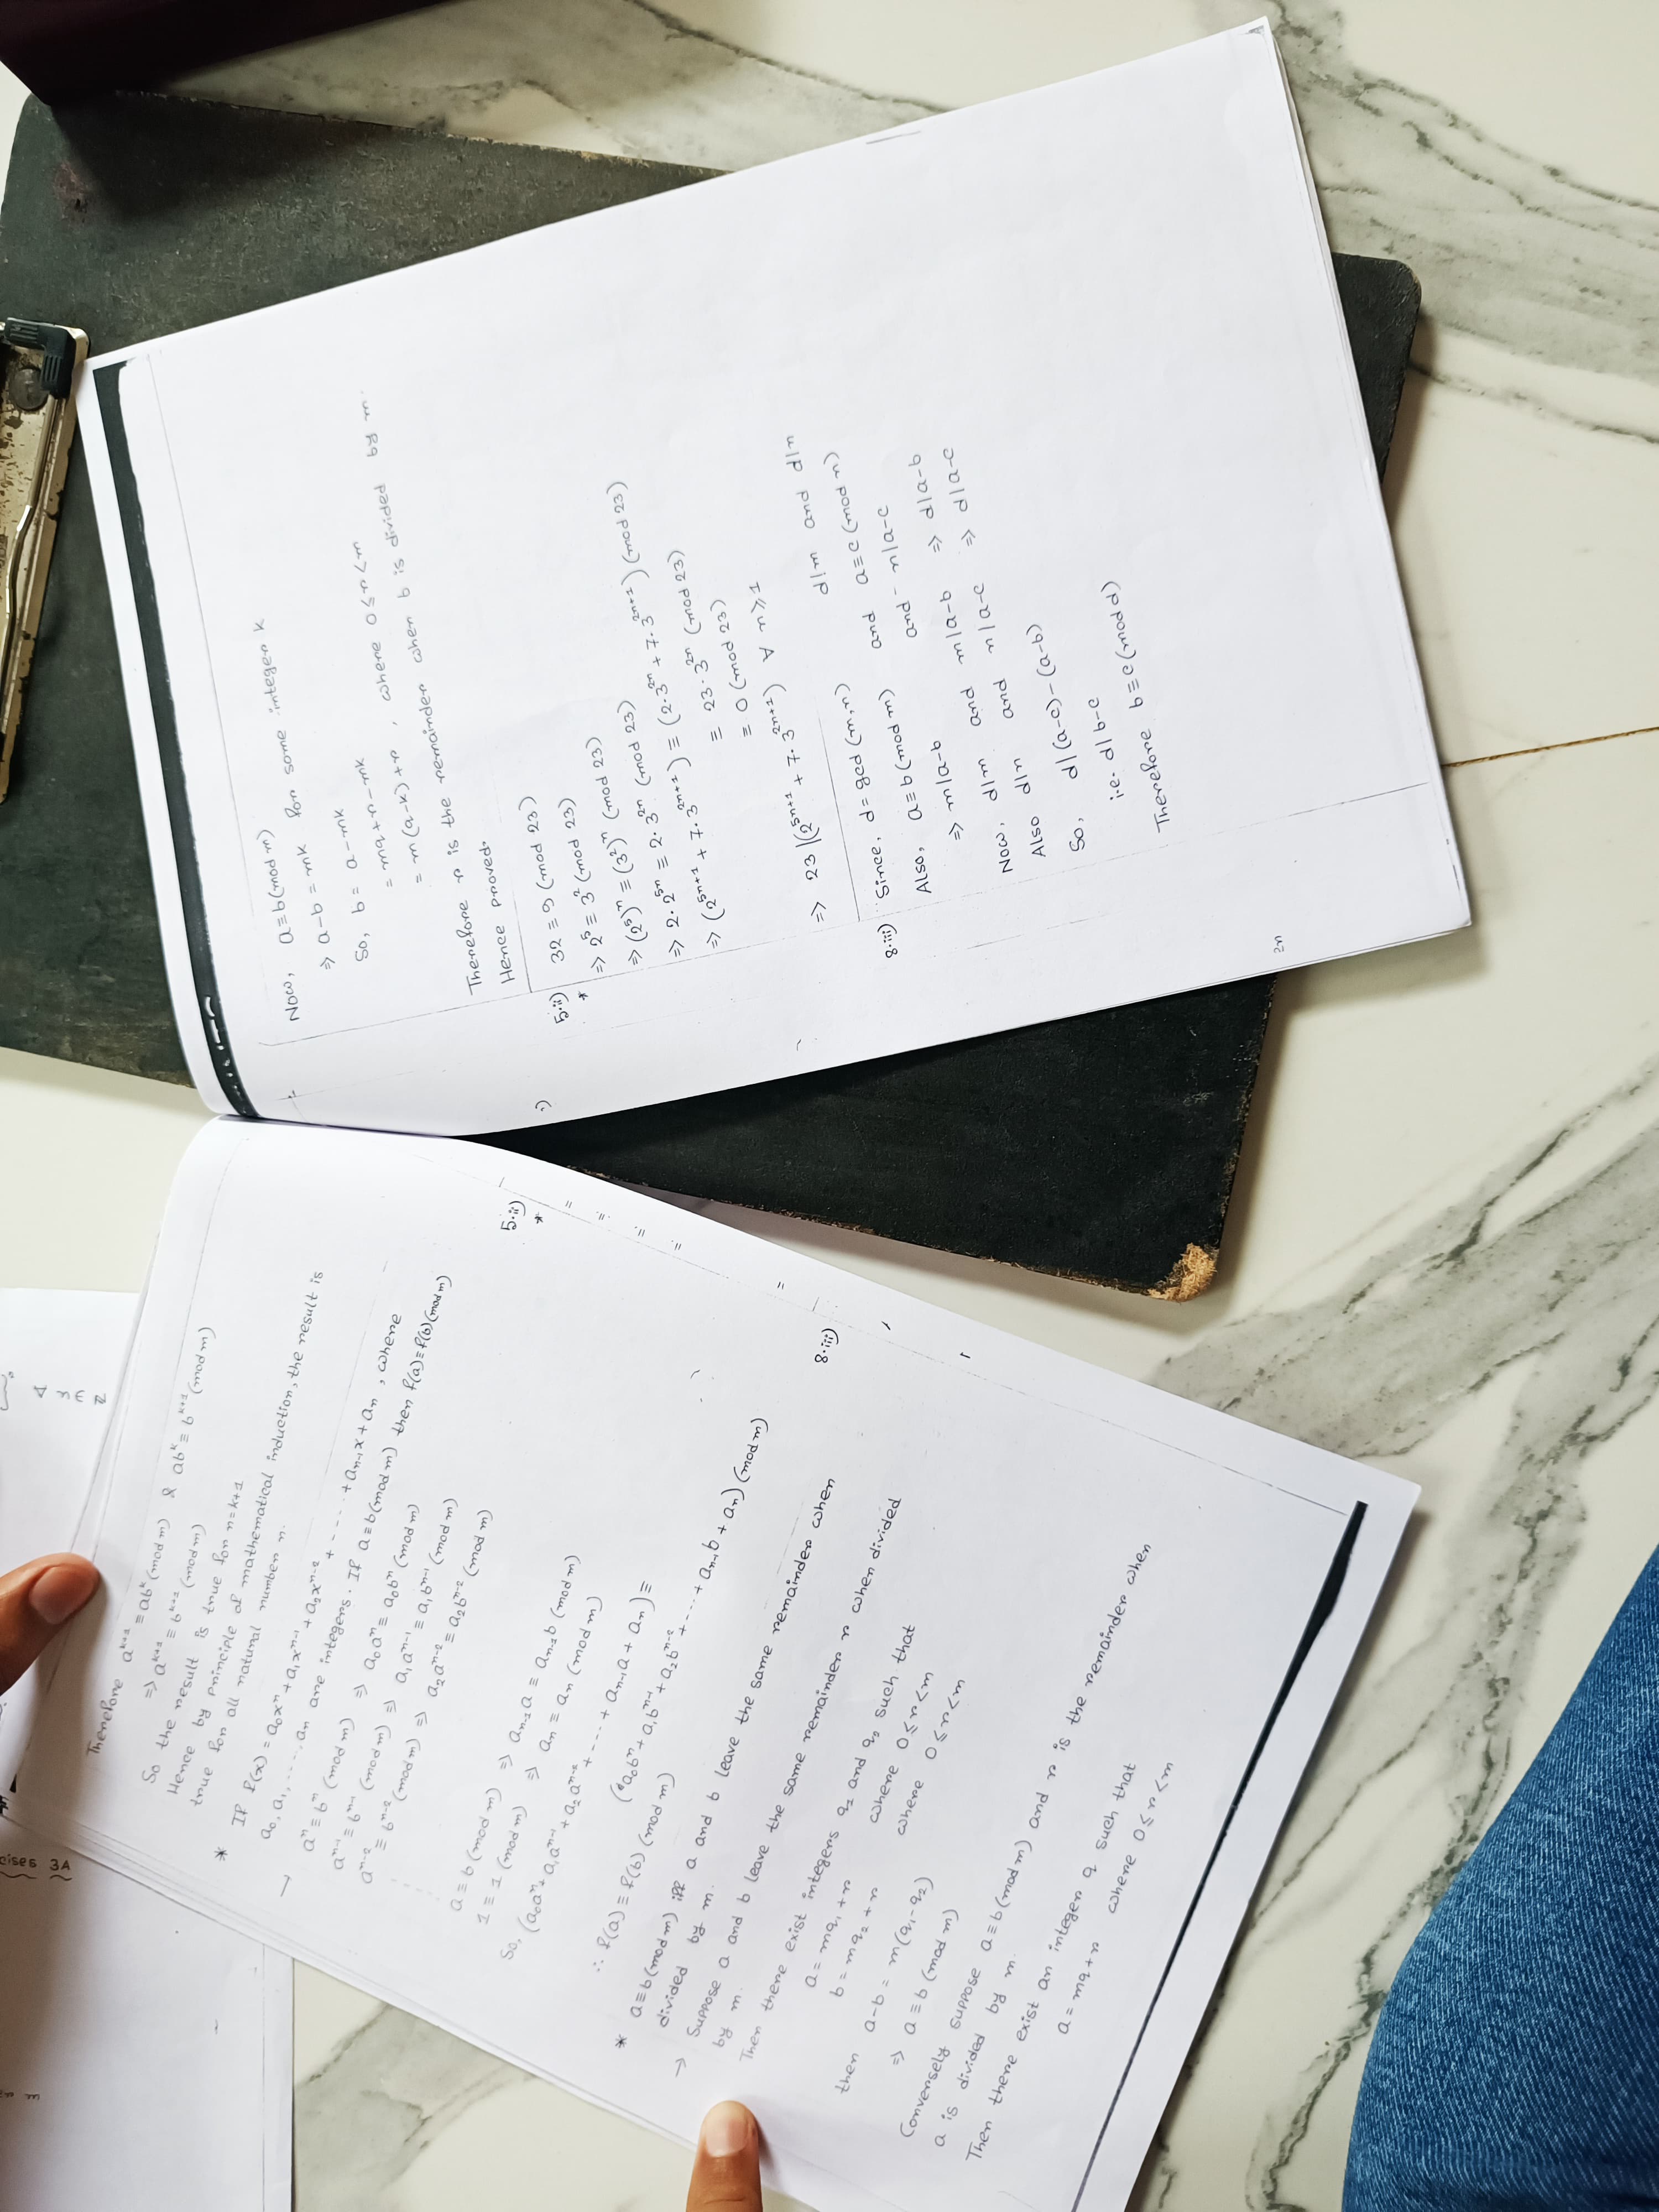 ises 3A
m
Therefore a^{k+1} ≡ ab^k (mod m) & ab^k ≡ b^{k+1} (mod m)
⇒ a^{k+1} ≡ b^{k+1} (mod m)
So the result is true for n=k+1
Hence by principle of mathematical induction, the result is
true for all natural number n.
* If f(x) = a₀xⁿ + a₁xⁿ⁻¹ + a₂xⁿ⁻² + ---- + aₙ₋₁x + aₙ , where
a₀, a₁, ----, aₙ are integers. If a≡b(mod m) then f(a)≡f(b)(mod m)
→ aⁿ ≡ bⁿ (mod m) ⇒ a₀aⁿ ≡ a₀bⁿ (mod m)
aⁿ⁻¹ ≡ bⁿ⁻¹ (mod m) ⇒ a₁aⁿ⁻¹ ≡ a₁bⁿ⁻¹ (mod m)
aⁿ⁻² ≡ bⁿ⁻² (mod m) ⇒ a₂aⁿ⁻² ≡ a₂bⁿ⁻² (mod m)
a ≡ b (mod m) ⇒ aₙ₋₁a ≡ aₙ₋₁b (mod m)
1 ≡ 1 (mod m) ⇒ aₙ ≡ aₙ (mod m)
So, (a₀aⁿ + a₁aⁿ⁻¹ + a₂aⁿ⁻² + ---- + aₙ₋₁a + aₙ) ≡
(a₀bⁿ + a₁bⁿ⁻¹ + a₂bⁿ⁻² + ---- + aₙ₋₁b + aₙ) (mod m)
∴ f(a) ≡ f(b) (mod m)
* a≡b(mod m) iff a and b leave the same remainder when
divided by m.
→ Suppose a and b leave the same remainder r when divided
by m.
Then there exist integers q₁ and q₂ such that
a = mq₁ + r where 0≤r<m
b = mq₂ + r where 0≤r<m
then a-b = m(q₁-q₂)
⇒ a ≡ b (mod m)
Conversely suppose a≡b(mod m) and r is the remainder when
a is divided by m.
Then there exist an integer q such that
a = mq + r where 0≤r<m
5.ii)
*
=
=
=
=
=
8.iii)
Now, a≡b(mod m)
⇒ a-b = mk for some integer k
So, b = a-mk
= mq+r-mk
= m(q-k)+r , where 0≤r<m
Therefore r is the remainder when b is divided by m.
Hence proved.
5.ii) 32 ≡ 9 (mod 23)
* ⇒ 2⁵ ≡ 3² (mod 23)
⇒ (2⁵)ⁿ ≡ (3²)ⁿ (mod 23)
⇒ 2·2⁵ⁿ ≡ 2·3²ⁿ (mod 23)
⇒ (2⁵ⁿ⁺¹ + 7·3²ⁿ⁺¹) ≡ (2·3²ⁿ + 7·3²ⁿ⁺¹) (mod 23)
≡ 23·3²ⁿ (mod 23)
≡ 0 (mod 23)
⇒ 23 |(2⁵ⁿ⁺¹ + 7·3²ⁿ⁺¹) ∀ n≥1
8.iii) Since, d = gcd (m,n) d|m and d|n
Also, a≡b(mod m) and a≡c(mod n)
⇒ m|a-b and n|a-c
Now, d|m and m|a-b ⇒ d|a-b
Also d|n and n|a-c ⇒ d|a-c
So, d|(a-c)-(a-b)
i.e. d|b-c
Therefore b≡c(mod d)
2n